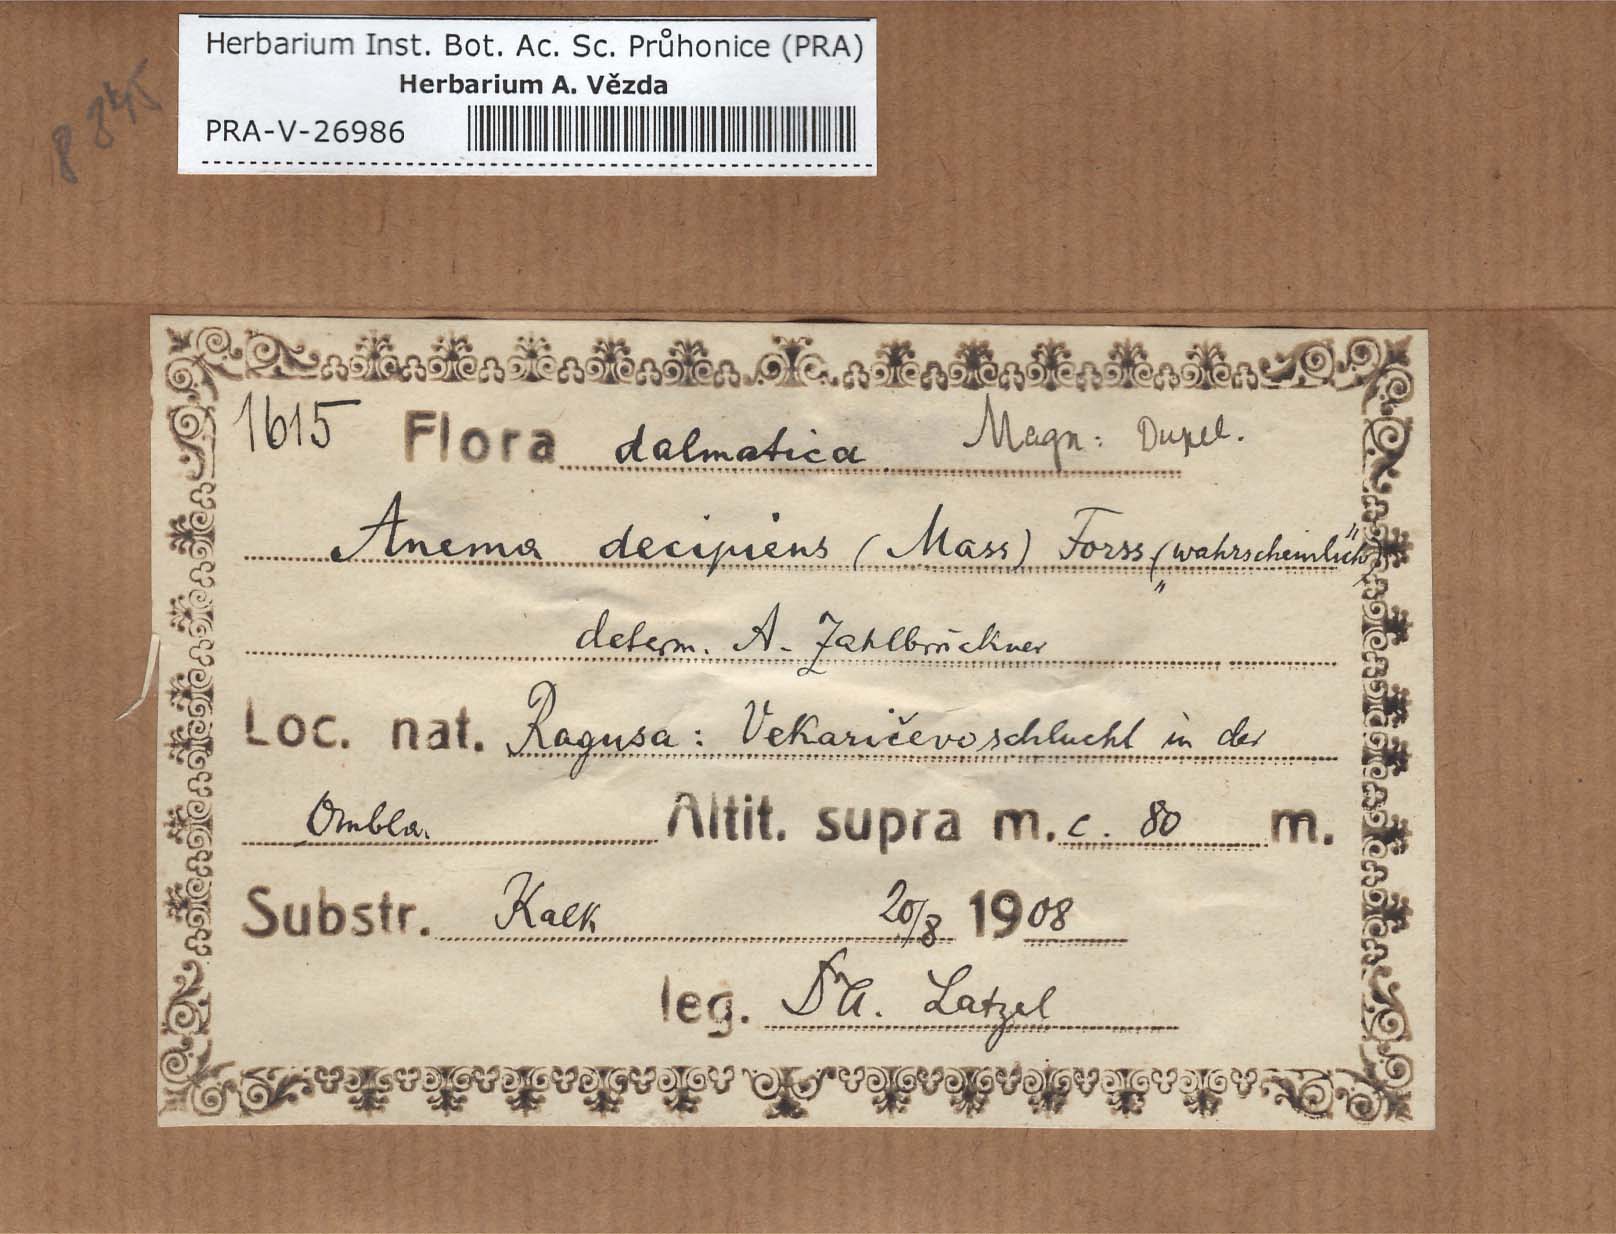 Herbarium Inst. Bot. Ac. Sc. Průhonice (PRA)
Herbarium A. Vězda
PRA-V-26986
8845
1615 Flora dalmatica Magn: Dupel.
Anema decipiens (Mass) Forss („wahrscheinlich“)
determ. A. Zahlbruckner
Loc. nat. Ragusa: Vekaričevoschlucht in der
Ombla. Altit. supra m. c. 80 m.
Substr. Kalk 20/8 1908
leg. Dr A. Latzel